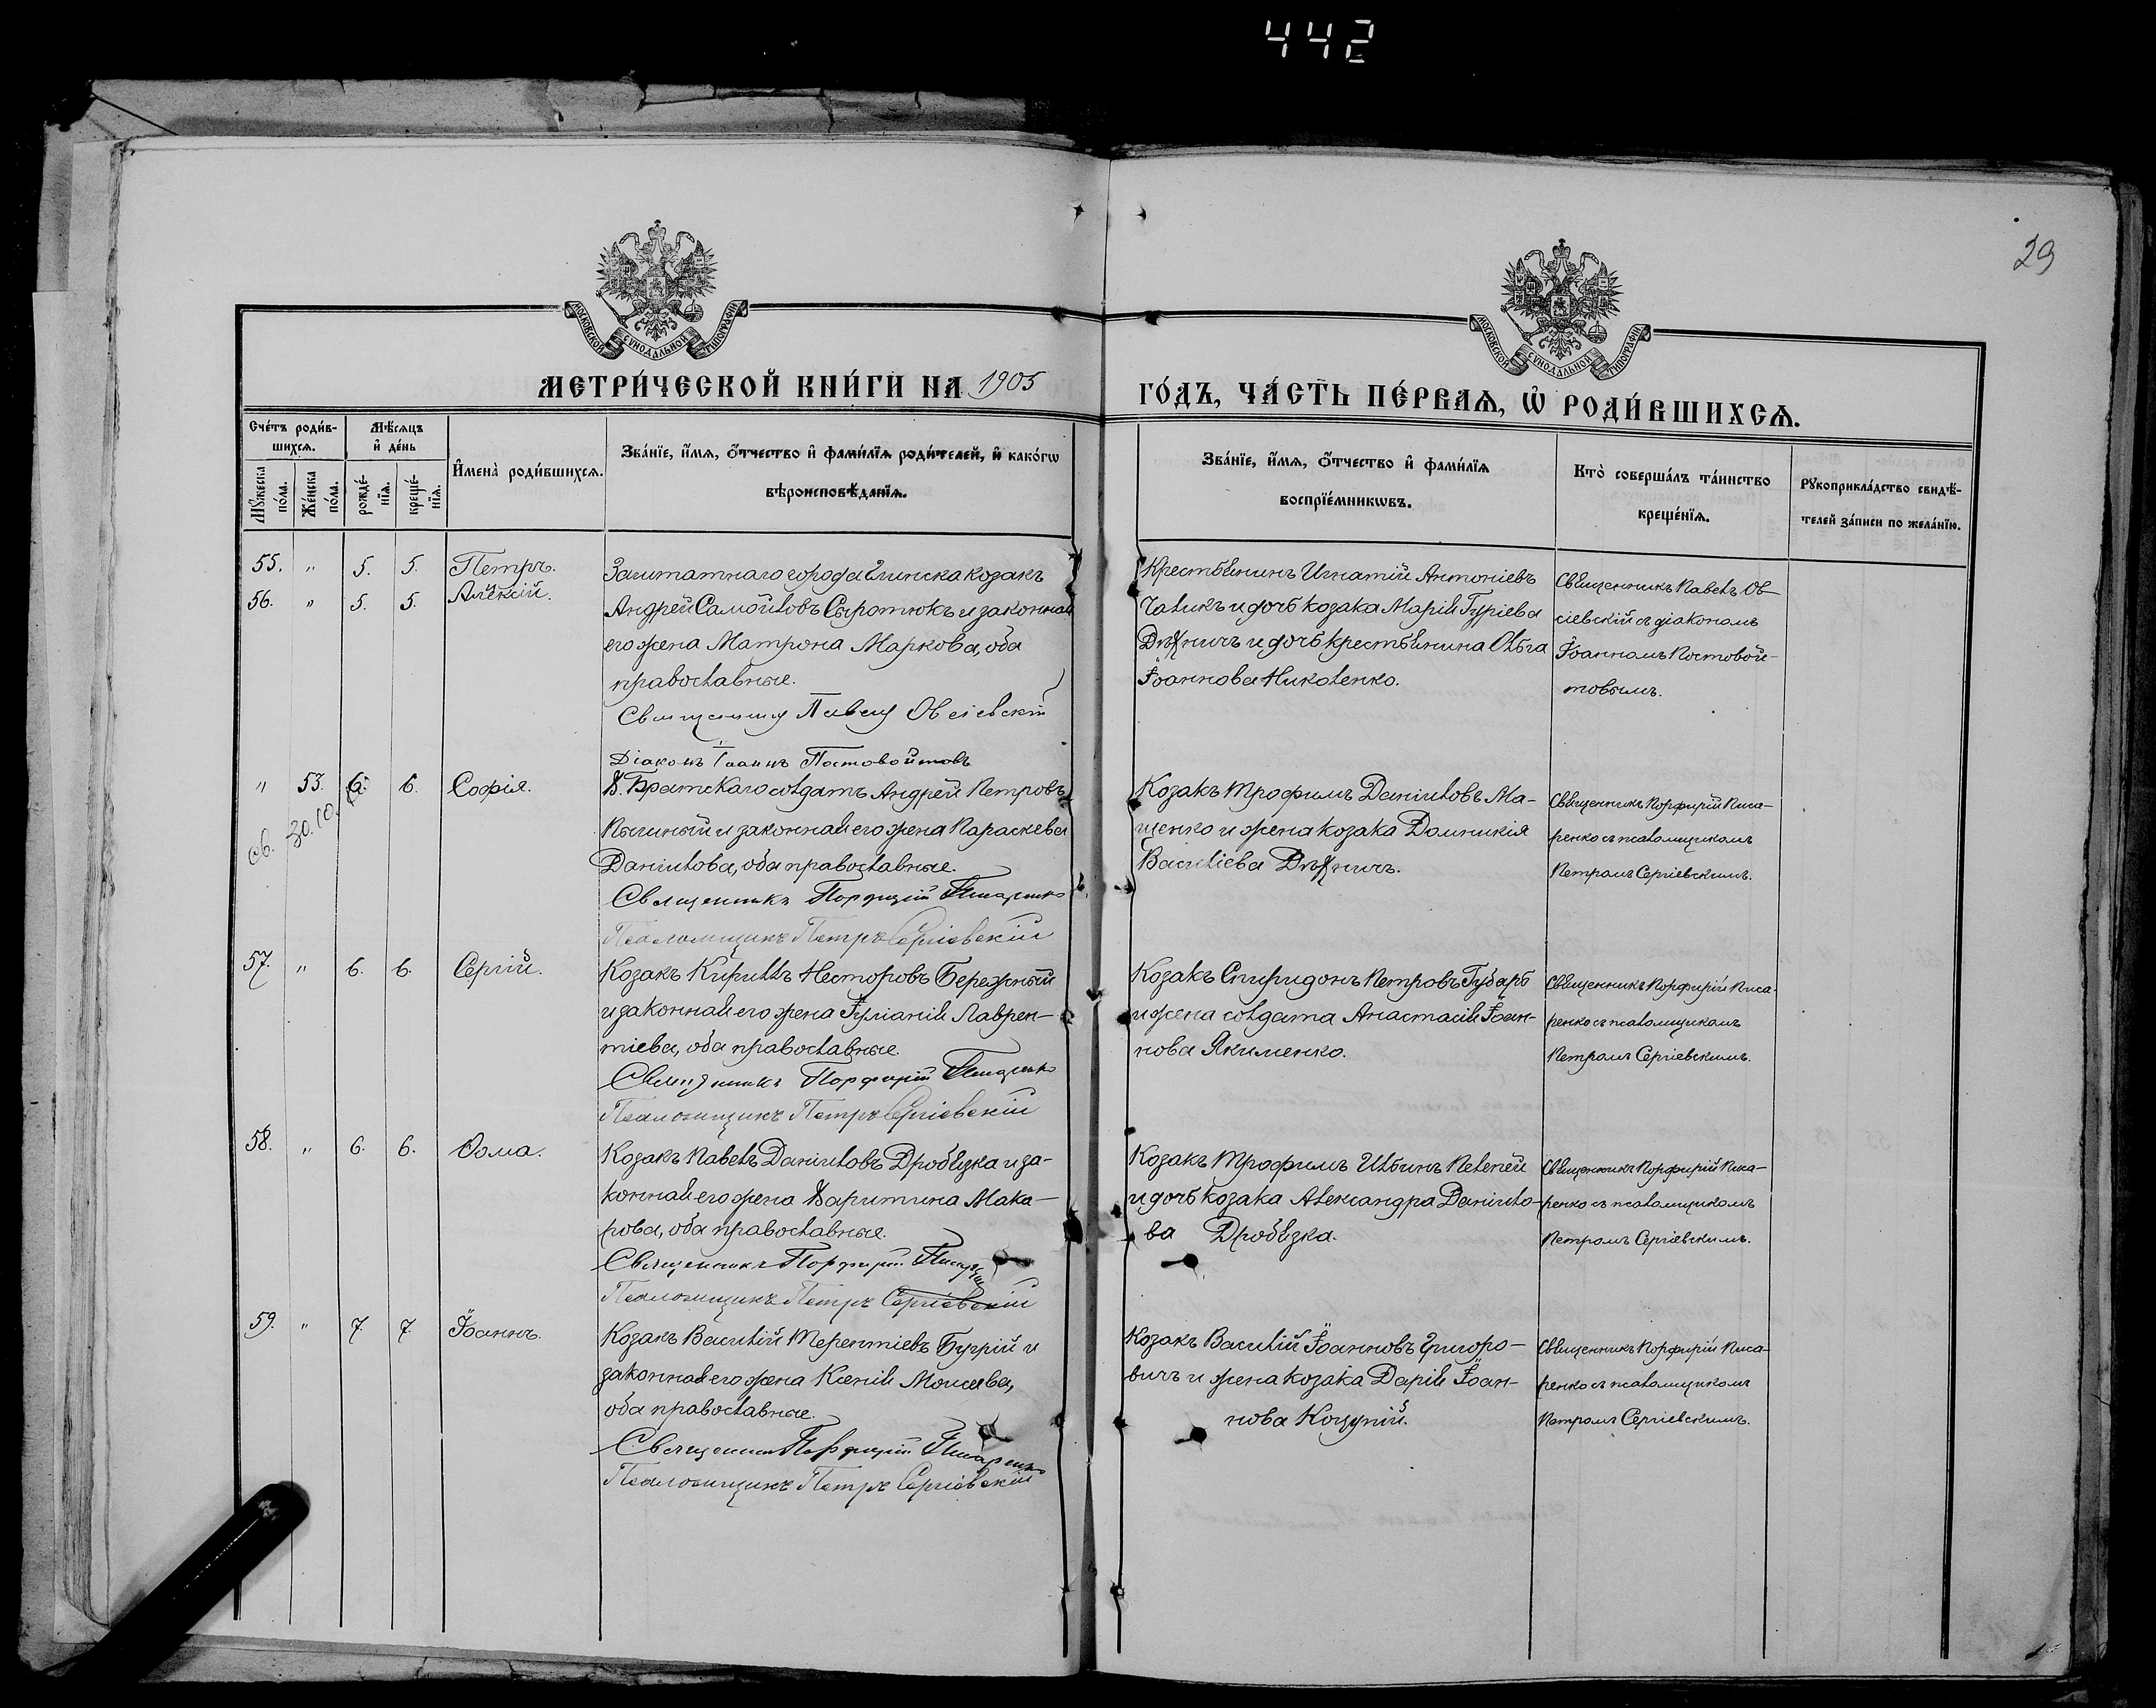 442
29
МОСКОВСКОЙ СУНОДАЛЬНОЙ ТИПОГРАФІИ
МОСКОВСКОЙ СУНОДАЛЬНОЙ ТИПОГРАФІИ
МЕТРИ́ЧЕСКОЙ КНИ́ГИ НА 1905 ГО́ДЪ, ЧА́СТЬ ПЕ́РВАѦ, Ѡ҆ РОДИ́ВШИХСѦ.
Сче́тъ роди́в-
шихсѧ.
Мꙋ́жеска
по́ла.
Же́нска
по́ла.
Мѣ́сѧцъ
и҆ де́нь
рожде́-
нїѧ.
креще́-
нїѧ.
И҆мена̀ роди́вшихсѧ.
Зва́нїе, и҆́мѧ, ѻ҆́тчество и҆ фами́лїѧ роди́телей, и҆ како́гѡ
вѣроисповѣ́данїѧ.
Зва́нїе, и҆́мѧ, ѻ҆́тчество и҆ фами́лїѧ
воспрїе́мникѡвъ.
Кто̀ соверша́лъ та́инство
креще́нїѧ.
Рꙋкоприкла́дство свидѣ́-
телей за́писи по жела́нїю.
55. " 5. 5. Петръ.
56. " 5. 5. Алексій.
Заштатнаго города Глинска козакъ
Андрей Самойловъ Сыротюкъ и законная
его жена Матрона Маркова, оба
православные.
Священникъ Павелъ Овсіевскій
Діаконъ Іоаннъ Постовойтовъ
Крестьянинъ Игнатій Антоніевъ
Чаликъ и дочь козака Марія Гуріева
и дочь крестьянина Ольга
Іоаннова Николенко.
Священникъ Павелъ Ов-
сіевскій съ діакономъ
Іоанномъ Постовой-
товымъ.
" 53. 6. 6. Софія.
св. 30.10.
Х. Братскаго солдатъ Андрей Петровъ
и законная его жена Параскева
Даніилова, оба православные.
Священникъ Порфирій Писаренко
Псаломщикъ Петръ Сергіевскій
Козакъ Трофимъ Даніиловъ Ма-
щенко и жена козака Домникія
Василіева
Священникъ Порфирій Писа-
ренко съ псаломщикомъ
Петромъ Сергіевскимъ.
57. " 6. 6. Сергій.
Козакъ Кириллъ Несторовъ Бережный
и законная его жена Іуліанія Лаврен-
тіева, оба православные.
Священникъ Порфирій Писаренко
Псаломщикъ Петръ Сергіевскій
Козакъ Спиридонъ Петровъ Губарь
и жена солдата Анастасія Іоан-
нова Якименко.
Священникъ Порфирій Писа-
ренко съ псаломщикомъ
Петромъ Сергіевскимъ.
58. " 6. 6. Ѳома.
Козакъ Павелъ Даніиловъ Дробязка и за-
конная его жена Харитина Мака-
рова, оба православные.
Священникъ Порфирій Писаренко
Псаломщикъ Петръ Сергіевскій
Козакъ Трофимъ Ильинъ Пелепей
и дочь козака Александра Даніило-
ва Дробязка.
Священникъ Порфирій Писа-
ренко съ псаломщикомъ
Петромъ Сергіевскимъ.
59. " 7. 7. Іоаннъ.
Козакъ Василій Терентіевъ Бугрій и
законная его жена Ксенія Моисеева,
оба православные.
Священникъ Порфирій Писаренко
Псаломщикъ Петръ Сергіевскій
Козакъ Василій Іоанновъ Григоро-
вичъ и жена козака Дарія Іоан-
нова Коцупій.
Священникъ Порфирій Писа-
ренко съ псаломщикомъ
Петромъ Сергіевскимъ.